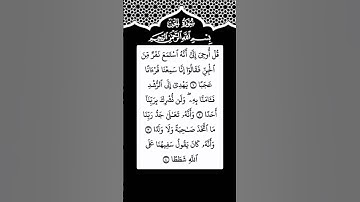 سُورَةُ الجِنِّ
بِسْمِ اللَّهِ الرَّحْمَٰنِ الرَّحِيمِ
قُلْ أُوحِيَ إِلَيَّ أَنَّهُ ٱسْتَمَعَ نَفَرٌ مِّنَ
ٱلْجِنِّ فَقَالُوٓا۟ إِنَّا سَمِعْنَا قُرْءَانًا
عَجَبًا ١ يَهْدِىٓ إِلَى ٱلرُّشْدِ
فَـَٔامَنَّا بِهِۦ ۖ وَلَن نُّشْرِكَ بِرَبِّنَآ
أَحَدًا ٢ وَأَنَّهُۥ تَعَٰلَىٰ جَدُّ رَبِّنَا
مَا ٱتَّخَذَ صَٰحِبَةً وَلَا وَلَدًا ٣
وَأَنَّهُۥ كَانَ يَقُولُ سَفِيهُنَا عَلَى
ٱللَّهِ شَطَطًا ٤